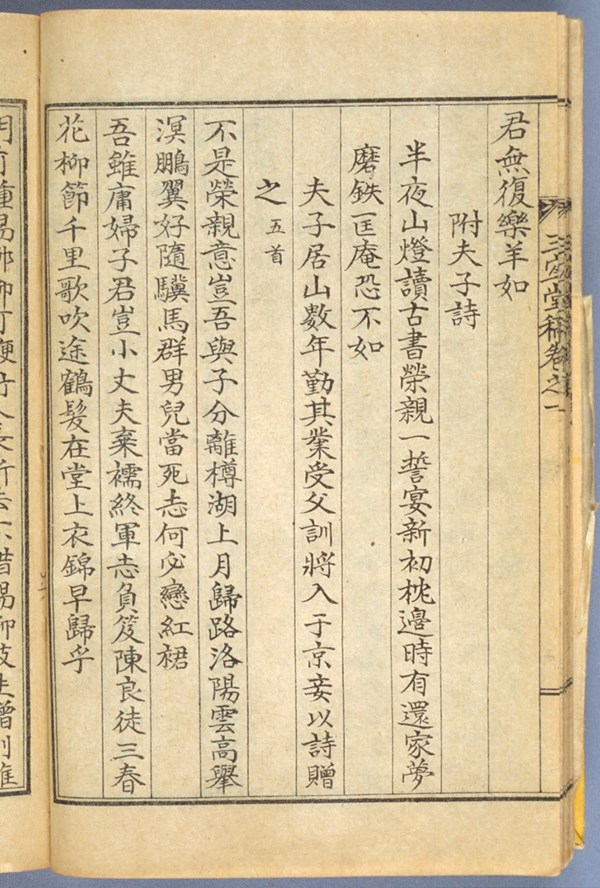 三宜堂稿卷之一
君無復樂羊如
附夫子詩
半夜山燈讀古書榮親一誓宴新初枕邊時有還家夢
磨鉄匡庵恐不如
夫子居山數年勤其業受父訓將入于京妾以詩贈
之五首
不是榮親意豈吾與子分離樽湖上月歸路洛陽雲高舉
溟鵬翼好隨驥馬群男兒當死志何必戀紅裙
吾雖庸婦子君豈小丈夫棄襦終軍志負笈陳良徒三春
花柳節千里歌吹途鶴髮在堂上衣錦早歸乎